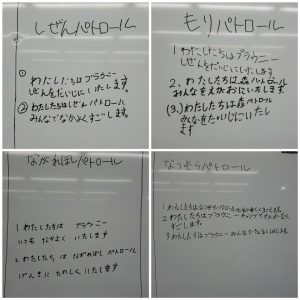 しぜんパトロール
① わたしたちはブラウニー
しぜんをだいじにいたします。
② わたしたちはしぜんパトロール
みんなでなかよくすごします。
もりパトロール
1 わたしたちはブラウニー
しぜんをだいじにいたします
2、わたしたちは森パトロール
みんなをえがおにいたします
(3.)わたしたちは森パトロール
みんなをだいじにいたし
ます
ながれぼしパトロール
1 わたしたちは ブラウニー
いつも なかよく いたします
2 わたしたち は ながれぼし パトロール
げんきに たのしく いたします
なっそうパトロール
1 わたしたちは
2 わたしたちはブラウニー キャンプで
すごします。
3 わたしたちはブラウニー みんなで